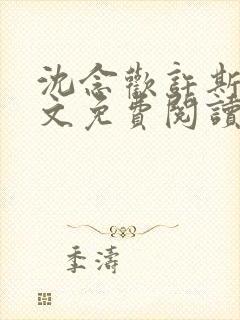 沈念歡許斯
文免費閱讀
季濤